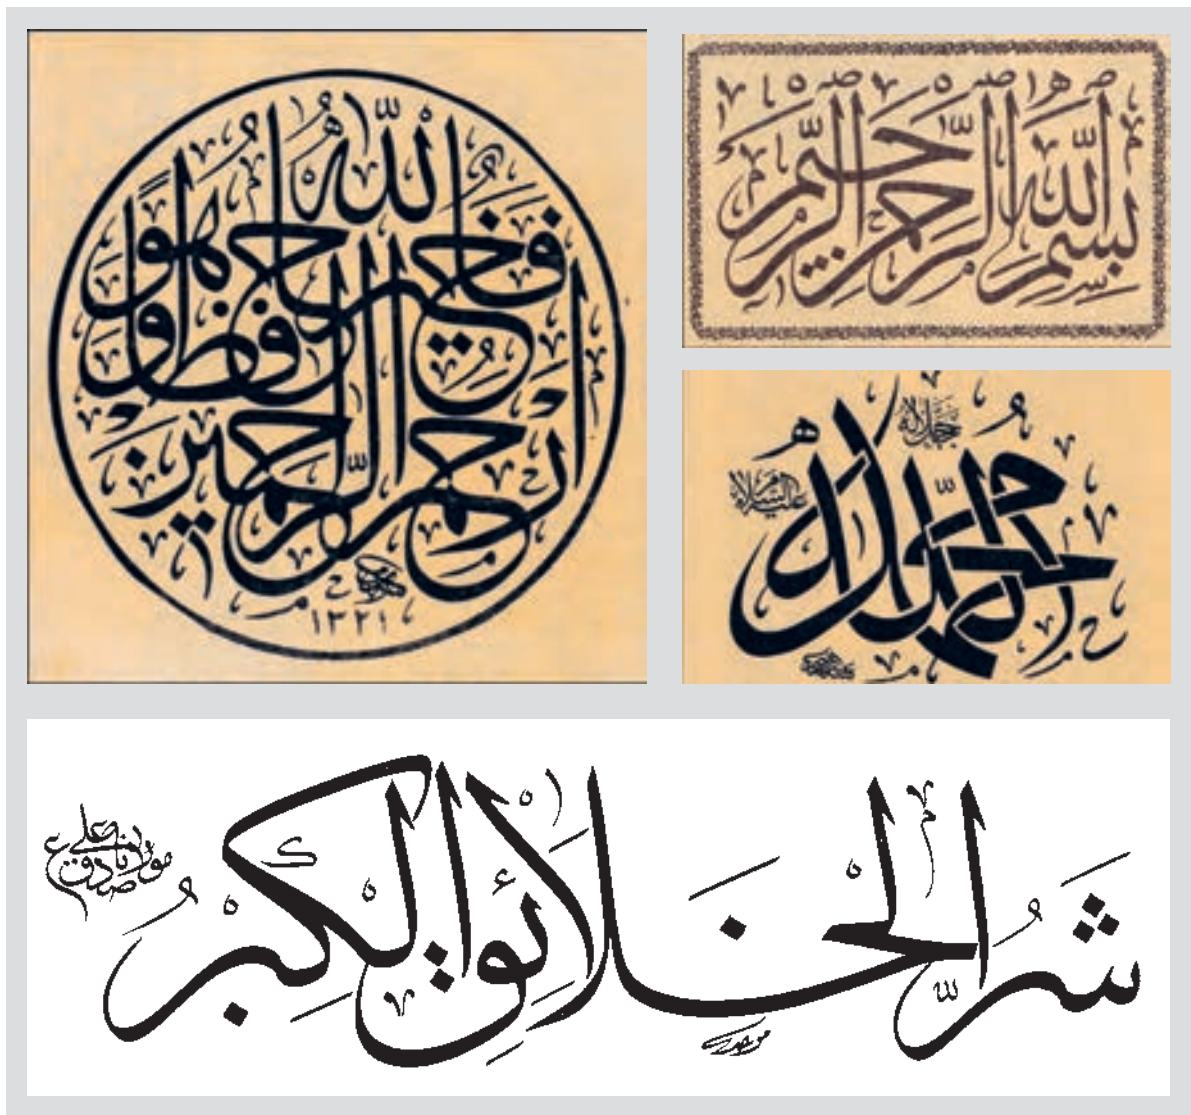 فالله خير حافظا وهو
أرحم الراحمين
١٣٢١
بسم الله الرحمن الرحيم
جل جلاله
عليه السلام
شَرُّ الْخَلَائِقِ الْكِبْرُ